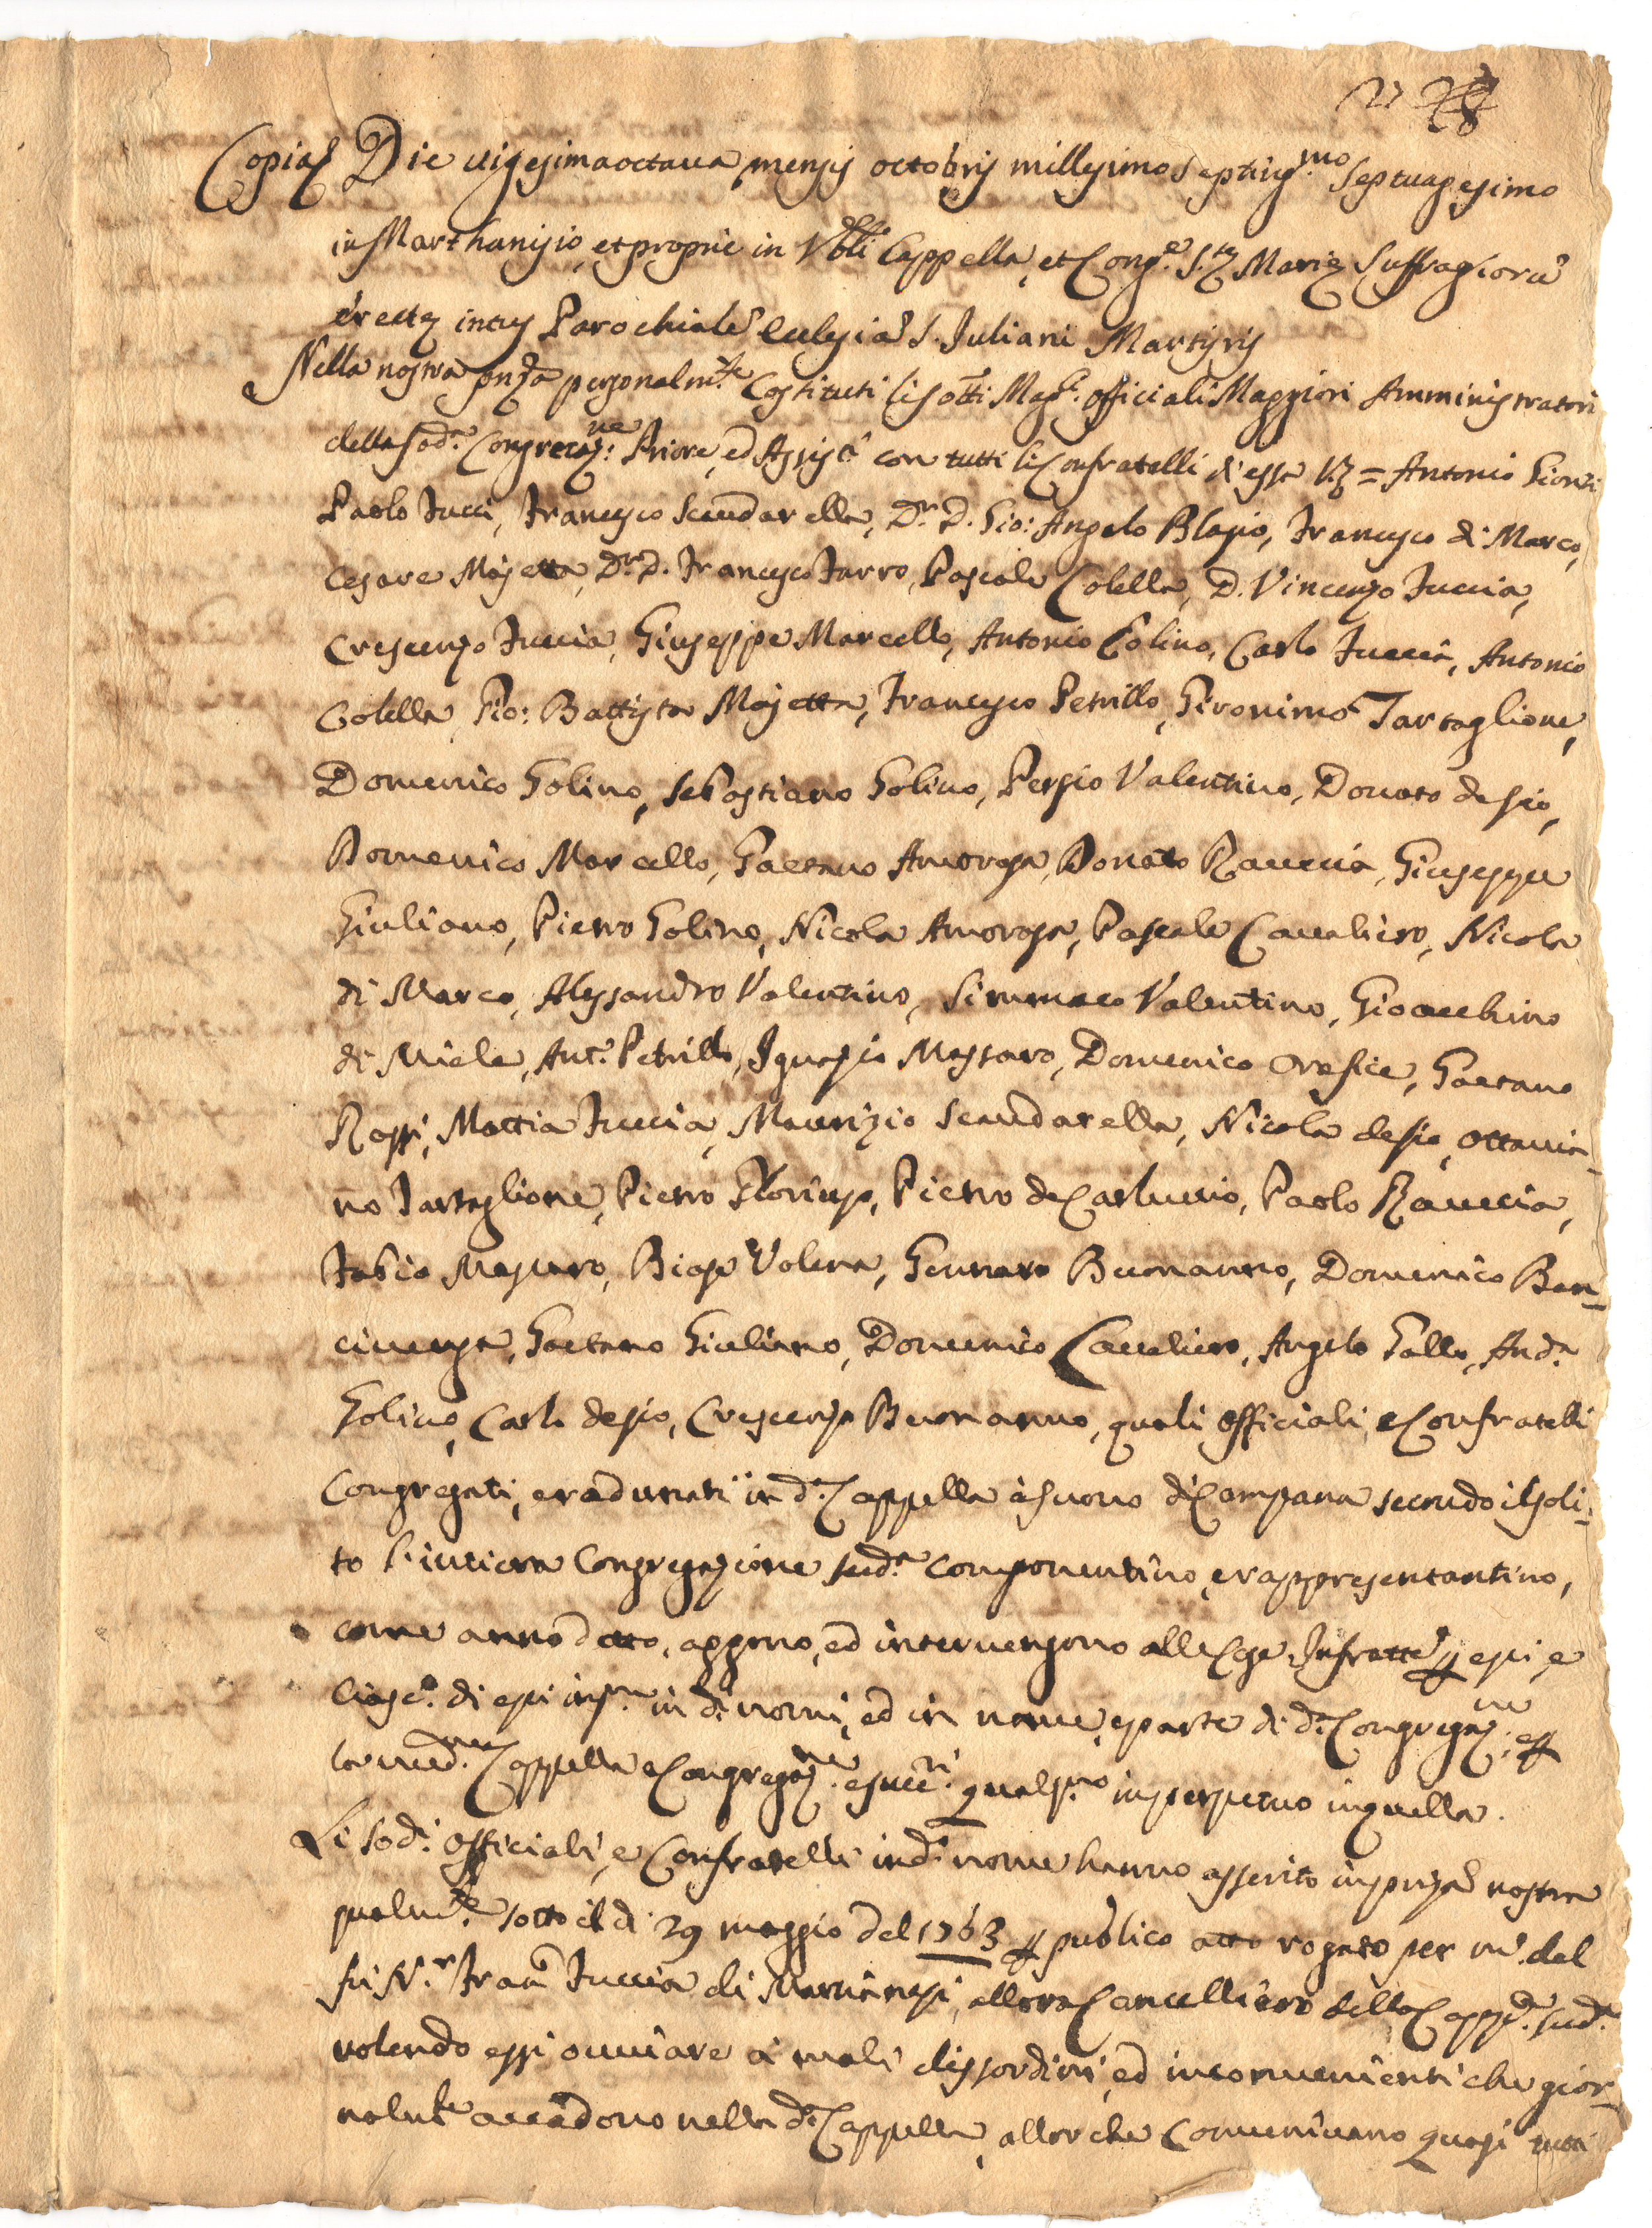 27 28
Copia Die vigesimaoctava mensis octobris millesimo septing.mo septuagesimo
in Marthanisio, et proprie in V.bli Cappella, et Cong.e S.tę Marię Suffragiorũ
erectę intus Parochialẽ Ecclesiã S. Juliani Martiris
Nella nostra pñza personalm.te Costituti li sotti Mag.ci officiali Maggiori Amministratori
della sod.a Congregaz.ne: Priore, ed Assist.i con tutti li Confratelli d'essa Vz = Antonio
Paolo Iucci, Francesco Scundarella, D.r D. Gio: Angelo Blasio, Francesco di Marco,
Cesare Majetta, D.r D. Francesco Farro, Pascale Colella, D. Vincenzo Iuccia,
Crescenzo Iuccia, Giuseppe Marcello, Antonio Golino, Carlo Iuccia, Antonio
Colella, Gio: Battista Majetta, Francesco Petrillo, Gironimo Tartaglione,
Domenico Golino, Sebastiano Golino, Persio Valentino, Donato de Sio,
Domenico Marcello, Gaetano Amorosa, Donato Rauccia, Giuseppe
Giuliano, Pietro Golino, Nicola Amorosa, Pascale Cavaliero, Nicola
di Marco, Alessandro Valentino, Simmaco Valentino, Gioacchino
di Miele, Ant.o Petrillo, Ignazio Massaro, Domenico Orefice, Gaetano
Rossi, Mattia Iuccia, Maurizio Scaudarella, Nicola de Sio, Ottavia-
no Tartaglione, Pietro Florinzo, Pietro de Carluccio, Paolo Rauccia,
Fabio Biase Valena, Gennaro Buonanno, Domenico Ben-
civenga, Gaetano Giuliano, Domenico Cavaliero, Angelo Gallo, And.a
Golino, Carlo de Sio, Crescenzo Buonanno, quali officiali, e Confratelli
Congregati, e radunati in d.a Cappella à suono di Campana secondo il soli-
to l'intiera Congregazione sud.a componentino, e rappresentantino,
come anno detto, aggono, ed intervengono alle Cose Infratte p essi, e
ciasc.o di essi ins.m in d.i nomi, ed in nome, e parte di d.a Congregaz.ne, e p
la med.ma Cappella e Congregaz.ne e succ.ri qualsi.no in perpetuo in quella.
Li sod.i officiali, e Confratelli in d.i nome hanno asserito in pñza nostra
qualm.te sotto il dì 29 maggio del 1763 p publico atto rogato per m.o del
fu N.r Fran.co Iuccia di Marcianesi, allora Cancelliero della Capp.a sud.a
volendo essi ovviare a' mali disordini, ed inconvenienti che gior-
nalm.te accadono nella d.a Cappella, allor che Comunivano quasi tutti